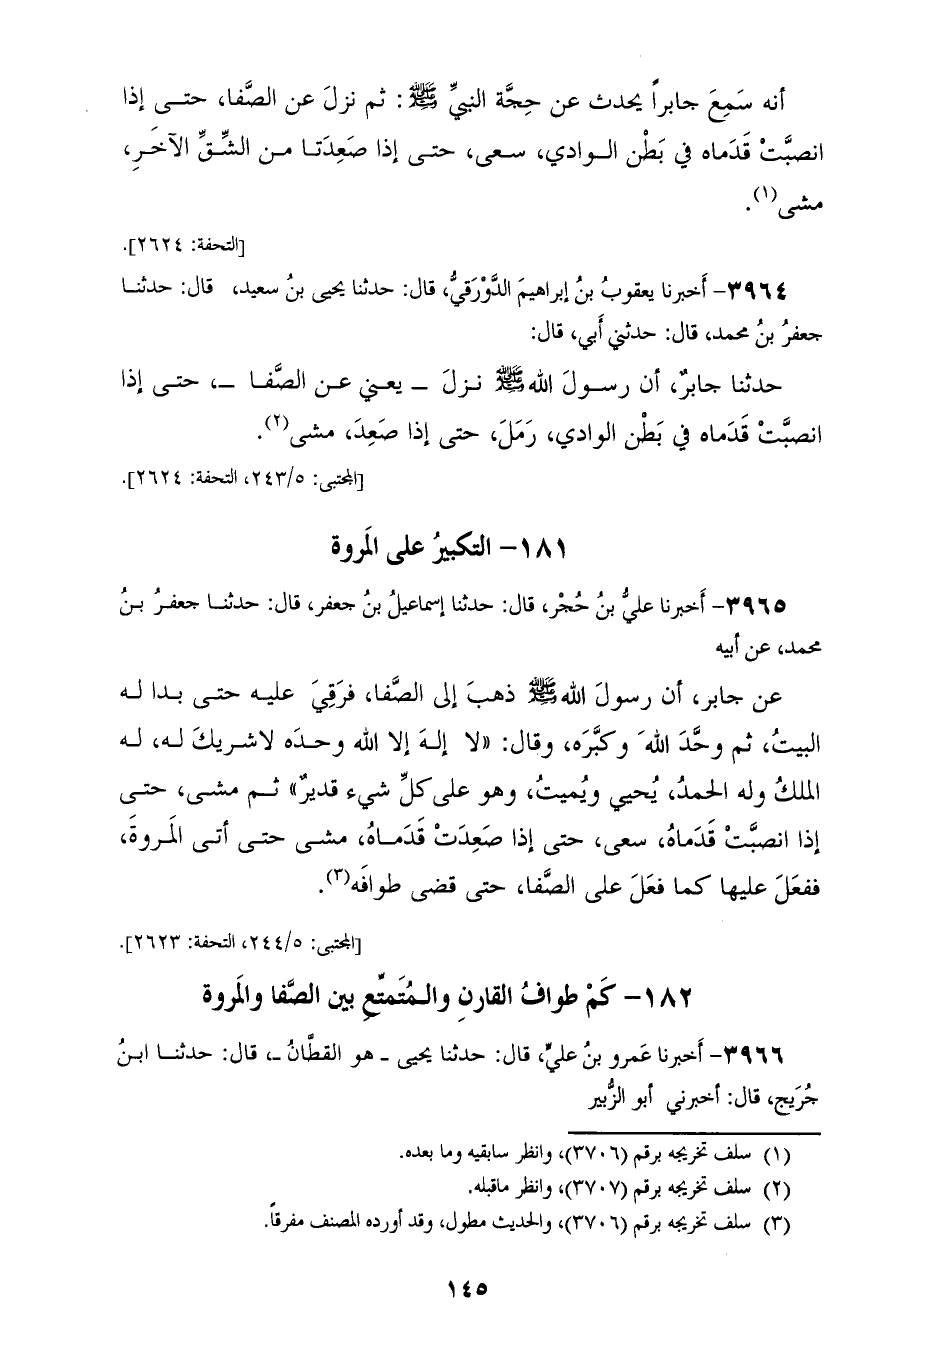 أنه سَمِعَ جابراً يحدث عن حِجَّة النبيِّ ﷺ: ثم نزلَ عن الصَّفا، حتى إذا
انصبَّتْ قَدَماه في بَطْن الوادي، سعى، حتى إذا صَعِدَتا من الشِّقِّ الآخَرِ،
مشى(١).
[التحفة: ٢٦٢٤].
٣٩٦٤- أَخبرنا يعقوبُ بنُ إبراهيمَ الدَّوْرَقيُّ، قال: حدثنا يحيى بنُ سعيد، قال: حدثنا
جعفرُ بنُ محمد، قال: حدثني أَبي، قال:
حدثنا جابرٌ، أن رسولَ الله ﷺ نزلَ – يعني عن الصَّفا –، حتى إذا
انصبَّتْ قَدَماه في بَطْن الوادي، رَمَلَ، حتى إذا صَعِدَ، مشى(٢).
[المجتبى: ٢٤٣/٥، التحفة: ٢٦٢٤].
١٨١- التكبيرُ على المَروة
٣٩٦٥- أَخبرنا عليُّ بنُ حُجْر، قال: حدثنا إسماعيلُ بنُ جعفر، قال: حدثنا جعفرُ بنُ
محمد، عن أبيه
عن جابر، أن رسولَ الله ﷺ ذهبَ إلى الصَّفا، فرَقِيَ عليه حتى بدا له
البيتُ، ثم وحَّدَ اللهَ وكبَّرَه، وقال: «لا إلهَ إلا الله وحدَه لاشريكَ له، له
الملكُ وله الحمدُ، يُحيي ويُميتُ، وهو على كلِّ شيء قديرٌ» ثم مشى، حتى
إذا انصبَّتْ قَدَماهُ، سعى، حتى إذا صَعِدَتْ قَدَماهُ، مشى حتى أتى المَروةَ،
ففعَلَ عليها كما فعَلَ على الصَّفا، حتى قضى طوافَه(٣).
[المجتبى: ٢٤٤/٥، التحفة: ٢٦٢٣].
١٨٢- كَمْ طوافُ القارنِ والمُتَمتِّعِ بين الصَّفا والمَروة
٣٩٦٦- أَخبرنا عَمرو بنُ عليٍّ، قال: حدثنا يحيى - هو القطَّانُ -، قال: حدثنا ابنُ
جُرَيج، قال: أخبرني أبو الزُّبير
(١) سلف تخريجه برقم (٣٧٠٦)، وانظر سابقيه وما بعده.
(٢) سلف تخريجه برقم (٣٧٠٧)، وانظر ماقبله.
(٣) سلف تخريجه برقم (٣٧٠٦)، والحديث مطول، وقد أورده المصنف مفرقاً.
١٤٥